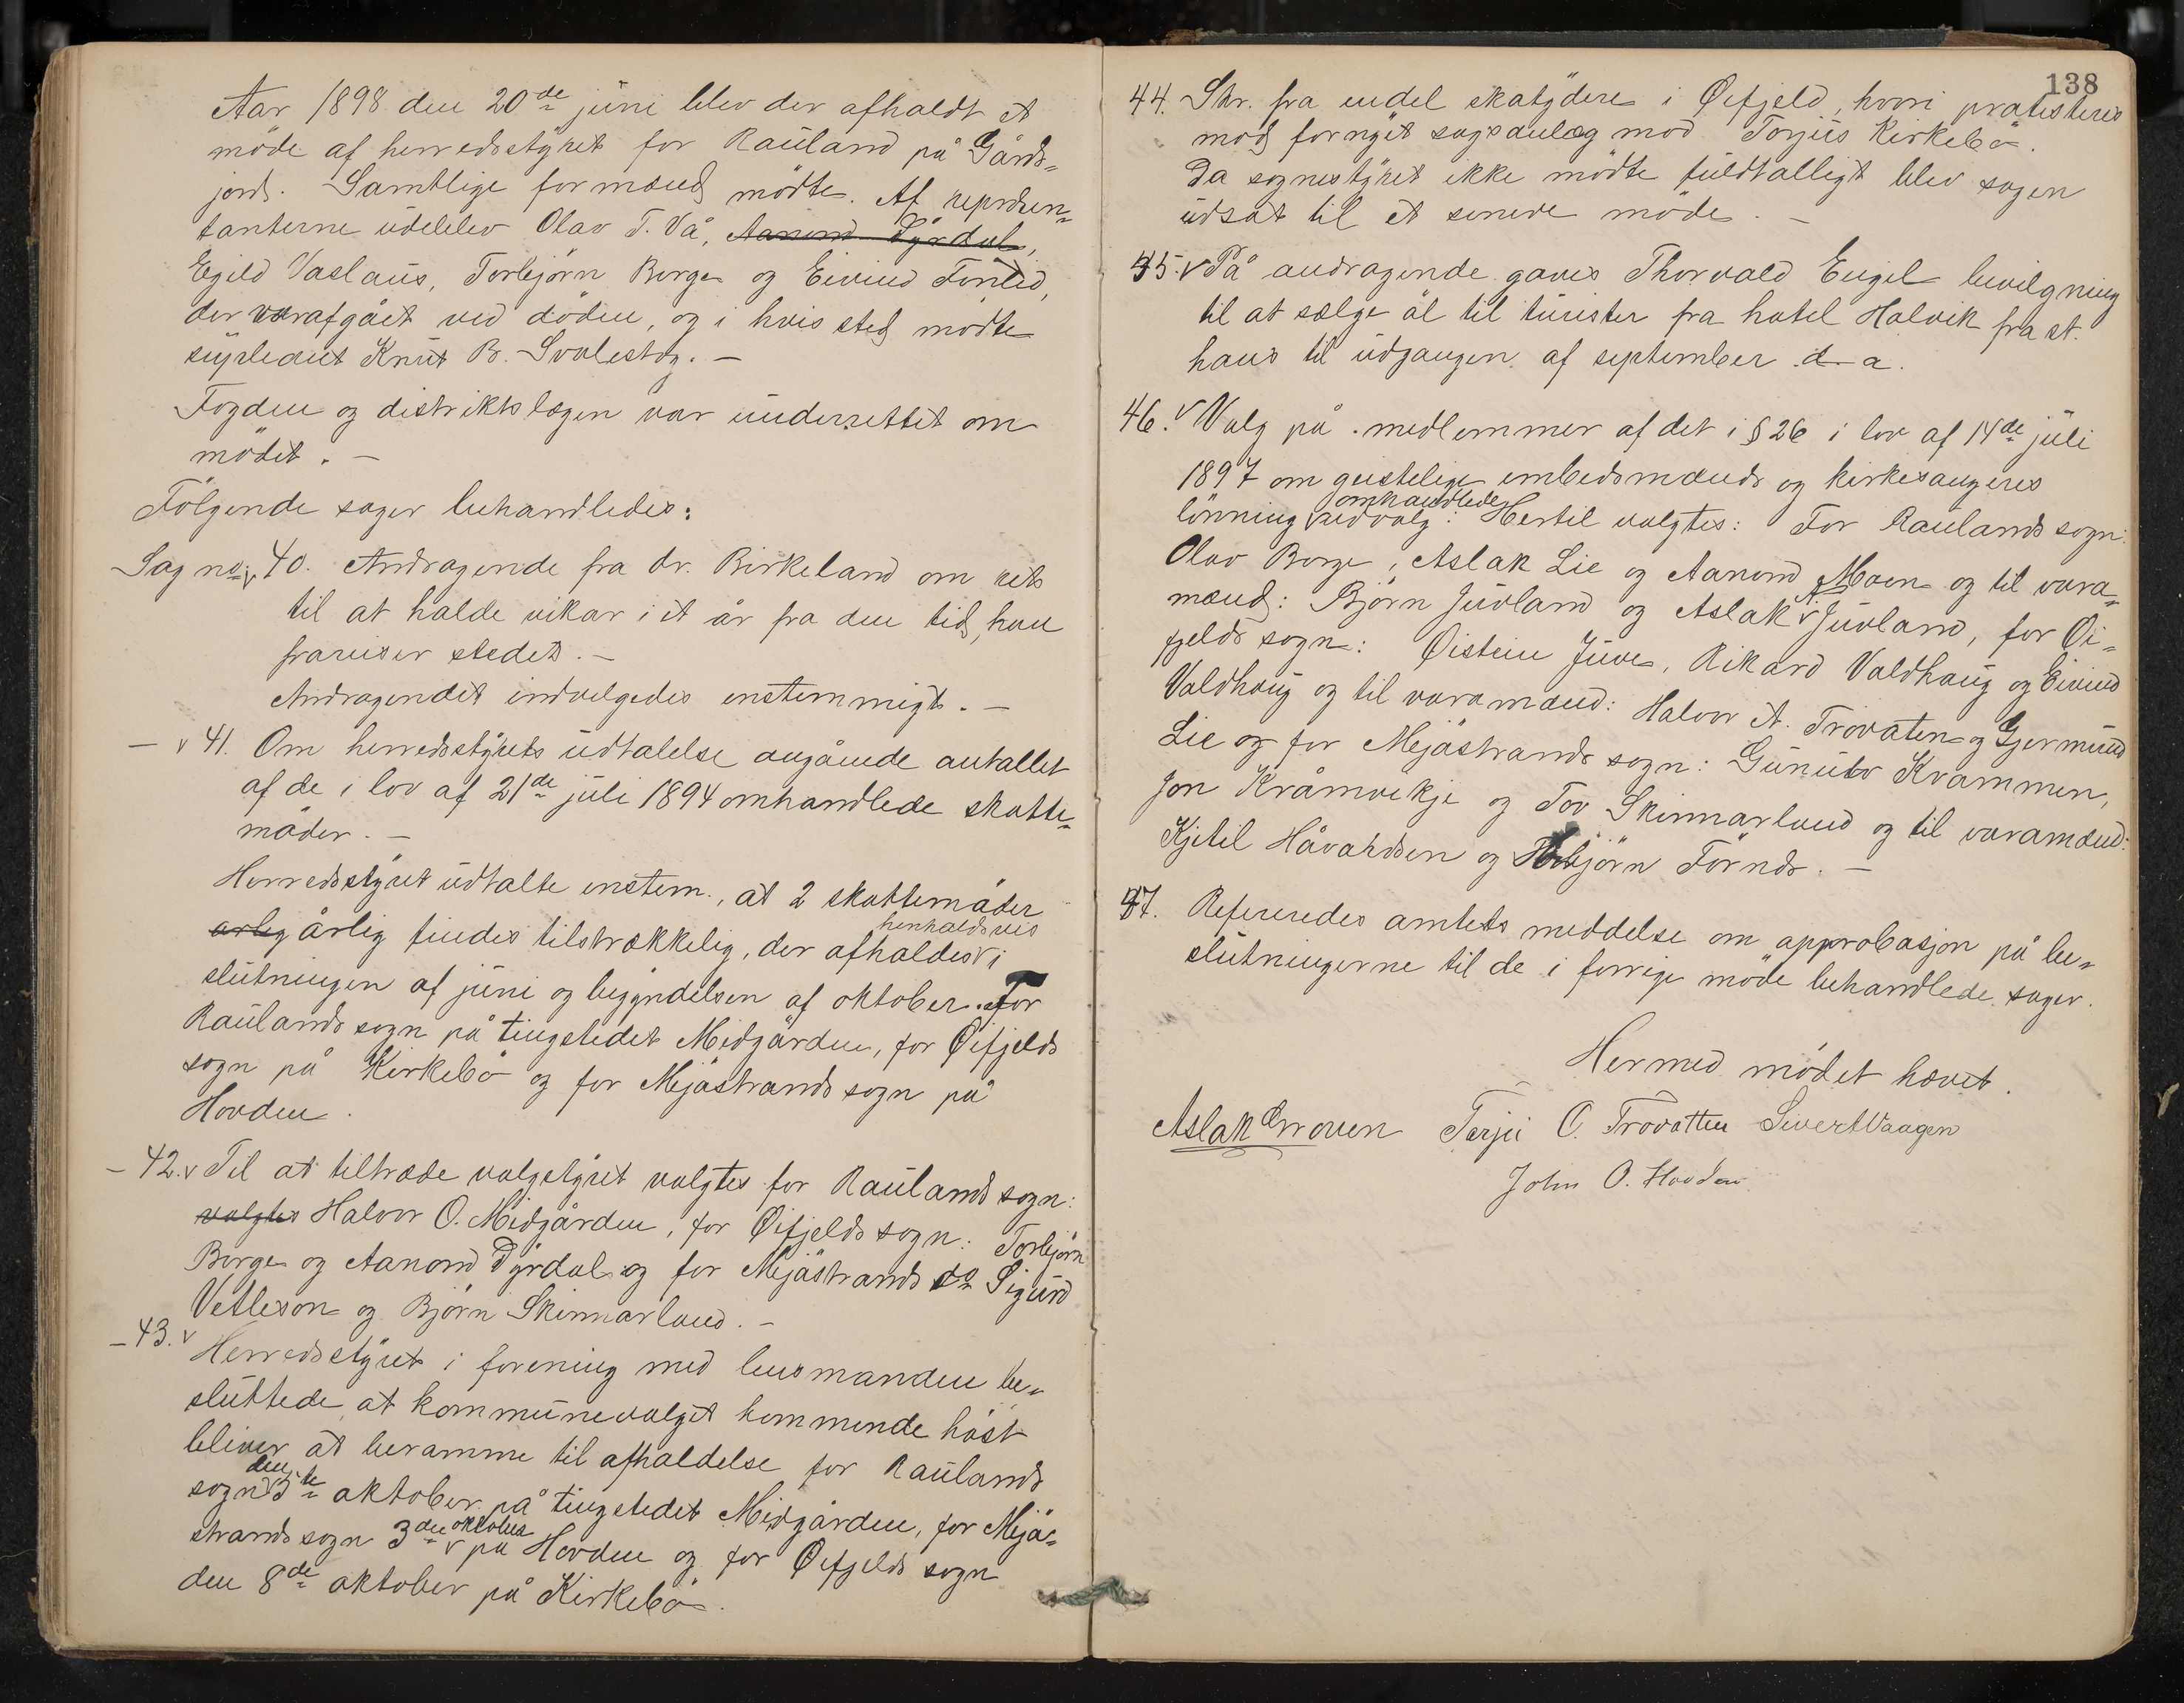 Aar 1898 den 20de juni blev der afholdt et
møde af herredsstyret for Rauland på Gårds-
jord. Samtlige formænd mødte. Af repræsen-
tanterne udeblev Olav T. Vå, Aanond Dyrdal,
Egild Vaslaus, Torbjørn Borge og Eivind Førlid,
der var afgået ved døden, og i hvis sted mødte
supleant Knut B. Svalestog. -
Fogden og distriktslægen var underrettet om
mødet. -
Følgende sager behandledes:
Sag no. 40. Andragende fra dr. Birkeland om ret
til at holde vikar i et år fra den tid, han
frareiser stedet. -
Andragendet indvilgedes enstemmigt. -
- v 41. Om herredsstyrets udtalelse angående antallet
af de i lov af 21de juli 1894 omhandlede skatte-
møder. -
Herredsstyret udtalte enstem., at 2 skattemøder
arleg årlig findes tilstrækkelig, der afholdes v i
henholdsvis
slutningen af juni og begyndelsen af oktober. For
Raulands sogn på tingstedet Midgården, for Øifjelds
sogn på Kirkebø og for Mjøstrands sogn på
Hovden.
- 42. v Til at tiltræde valgstyret valgtes for Raulands sogn:
valgtes Halvor O. Midgården, for Øifjelds sogn: Torbjørn
Borge og Aanond Dyrdal og for Mjøstrands do Sigurd
Vetleson og Bjørn Skinnarland. -
- 43. v Herredsstyret i forening med lensmanden be-
sluttede, at kommunevalget kommende høst
bliver at beramme til afholdelse for Raulands
sogn v den 5te oktober på tingstedet Midgården, for Mjø-
strands sogn 3die v oktober på Hovden og for Øifjelds sogn
den 8de oktober på Kirkebø.
138
44. Skr. fra endel skatydere i Øifjeld, hvori protesteres
mod fornyet sagsanlæg mod Torjus Kirkebø.
Da sognestyret ikke mødte fuldtalligt blev sagen
udsat til et senere møde. -
45. v På andragende gaves Thorvald Engel bevilgning
til at sælge øl til turister fra hotel Halvik fra st.
hans til udgangen af september d. a.
46. v Valg på medlemmer af det i § 26 i lov af 14de juli
1897 om geistelige embedsmænds og kirkesangeres
lønning v omhandlede udvalg: Hertil valgtes: For Raulands sogn:
Olav Borge, Aslak Lie og Aanond Moen og til vara-
mænd: Bjørn Juvland og Aslak v A. Juvland, for Øi-
fjelds sogn: Øistein Juve, Rikard Valdhaug og Eivind
Valdhaug og til varamænd: Halvor A. Trovaten og Gjermund
Lie og for Mjøstrands sogn: Gunulv Kvammen,
Jon Kråmvikje og Tov Skinnarland og til varamænd:
Kjetil Håvardsen og Torbjørn Førnds. -
47. Refereredes amtets meddelse om approbasjon på be-
slutningerne til de i forrige møde behandlede sager.
Hermed mødet hævet.
Aslak Groven Terjei O. Trovatten Sivert Vaagen
John O. Hovden